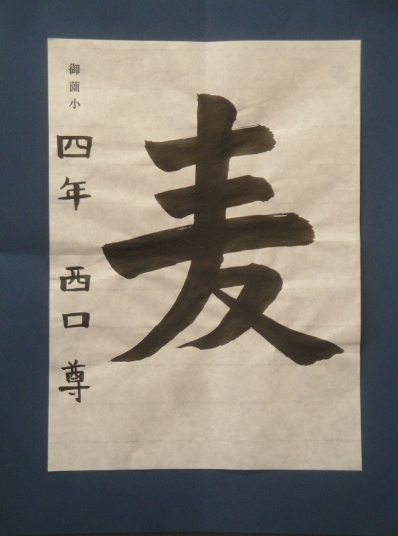 麦
御薗小
四年 西口 尊